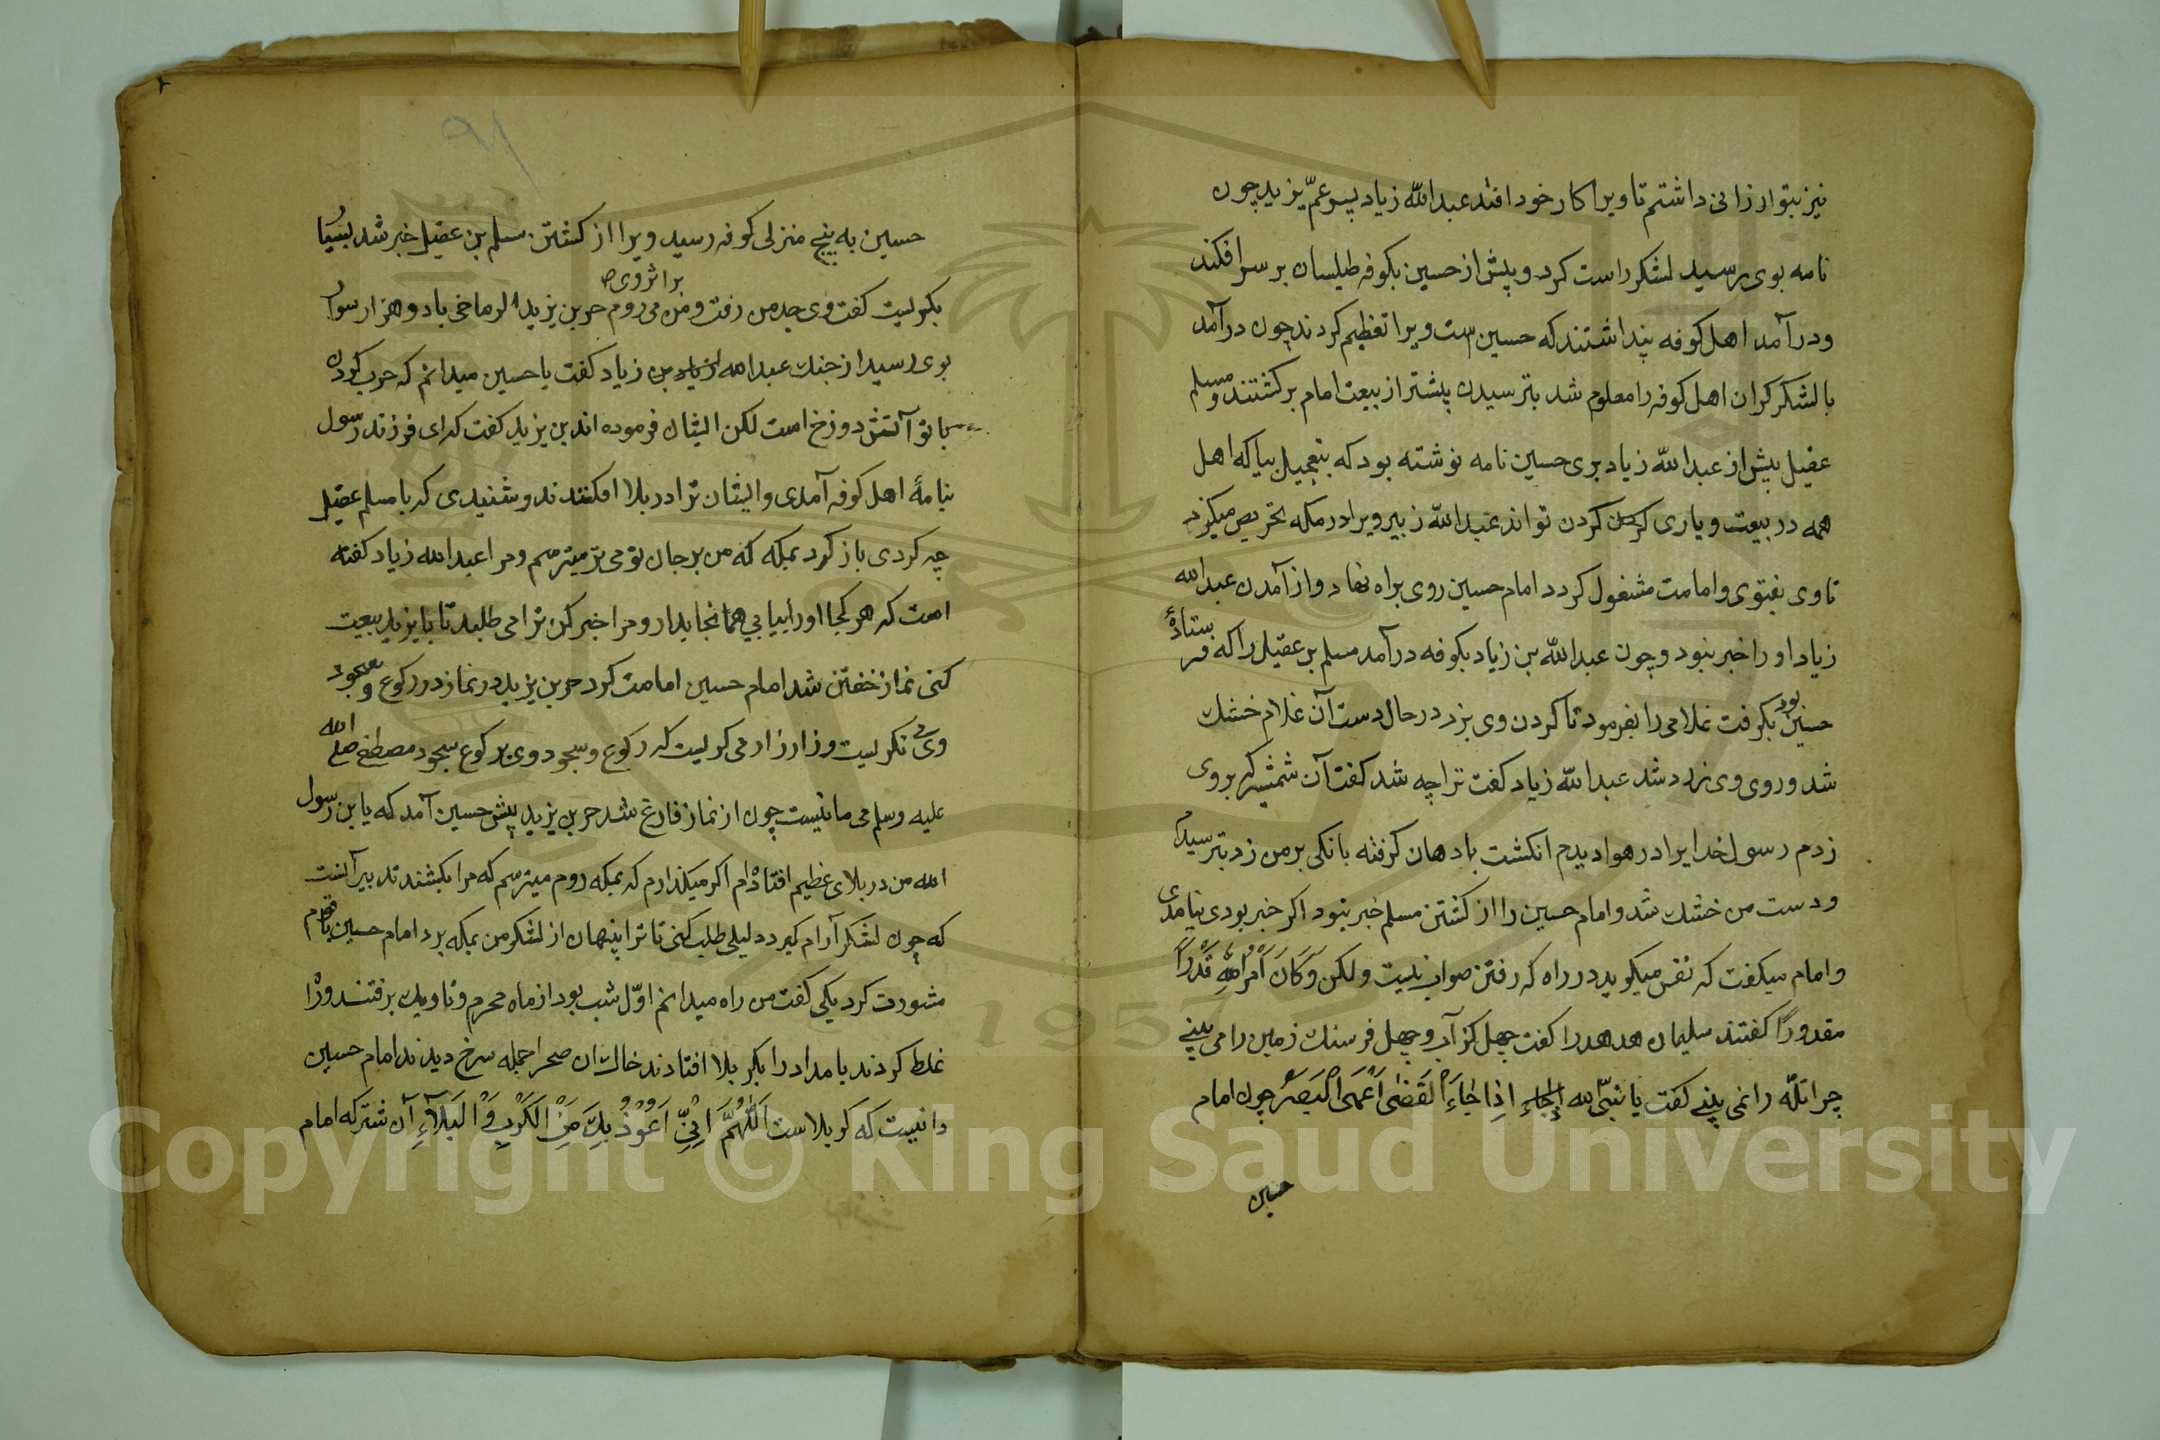 نیز بتو ارزانی داشتم تا ویرا کار خود افتد عبدالله زیاد پسر عمّ یزید چون
نامه بوی رسید لشکر راست کرد و پیش از حسین بکوفه طیلسان بر سر افکند
و در آمد اهل کوفه پنداشتند که حسین ست ویرا تعظیم کردند چون در آمد
با لشکر کران اهل کوفه را معلوم شد بترسیدن پیشتر از بیعت امام برکشتند و مسلم
عقیل پیش از عبدالله زیاد بری حسین نامه نوشته بود که بتعجیل بیا که اهل
همه در بیعت و یاری کردن تواند عبدالله زبیر ویرا در مکه تحریص میکرد
تا وی بفتوی و امامت مشغول کردد امام حسین روی براه نهاد و از آمدن عبدالله
زیاد او را خبر نبود و چون عبدالله بن زیاد بکوفه در آمد مسلم بن عقیل را که فرستادهٔ
حسین بود بکرفت غلامی را بفرمود تا کردن وی بزد در حال دست آن غلام خشک
شد و روی وی زرد شد عبدالله زیاد کفت ترا چه شد کفت آن شمشیر که بروی
زدم رسول خدایرا در هوا دیدم انکشت بادهان کرفته بانکی بر من زد بترسیدم
و دست من خشک شد و امام حسین را از کشتن مسلم خبر نبود اکر خبر بودی نیامدی
و امام میکفت که نفس میکوید در راه که رفتن صواب نیست ولکن وَكَانَ أَمْرُ اللّٰهِ قَدَرًا
مقدورًا کفتند سلیمان هدهد را کفت چهل کز آب و چهل فرسنک زمین را می بینی
چرا تله را نمی بینی کفت یا نبیّ الله اِذا جَاءَ الْقَضٰی اَعْمَی الْبَصَرُ چون امام
حسین
۹۱
حسین به پنج منزلی کوفه رسید ویرا از کشتن مسلم بن عقیل خبر شد بسیار
بر اثر وی
بکریست کفت وی جدمن رفت و من می روم حر بن یزید الرماحی باد و هزار سوار
بوی رسید از جنک عبدالله بن زیاد کفت یا حسین میدانم که حرب کردن
با تو آتش دوزخ است لکن ایشان فرموده اند بن یزید کفت که ای فرزند رسول
بنامهٔ اهل کوفه آمدی و ایشان ترا در بلا افکندند و شنیدی که با مسلم عقیل
چه کردی باز کرد بمکه که من بر جان تو می ترمیترسم و مرا عبدالله زیاد کفته
است که هر کجا او را بیابی همانجا بدار و مرا خبر کن ترا می طلبد تا با یزید بیعت
کنی نماز خفتن شد امام حسین امامت کرد حر بن یزید در نماز در رکوع و سجود
وی نکریست و زار زار می کریست که رکوع و سجود وی بر کوع سجود مصطفی صلی الله
علیه وسلم می مانیست چون از نماز فارغ شد حر بن یزید پیش حسین آمد که یا بن رسول
الله من در بلای عظیم افتاده ام اکر میکذارم که بمکه روم میترسم که مرا بکشند تدبیر آنست
که چون لشکر آرام کیرد دلیلی طلب کنی تا ترا پنهان از لشکر من بمکه برد امام حسین با قوم
مشورت کرد یکی کفت من راه میدانم اوّل شب بود از ماه محرم و تاریک برفتند و راه
غلط کردند بامداد را بکربلا افتادند خاک ان صحرا جمله سرخ دیدند امام حسین
دانیست که کربلاست اَللّٰهُمَّ اِنِّی اَعُوْذُ بِكَ مِنَ الْكَرْبِ وَ الْبَلَآءِ آن شتر که امام
Copyright © King Saud University
1957